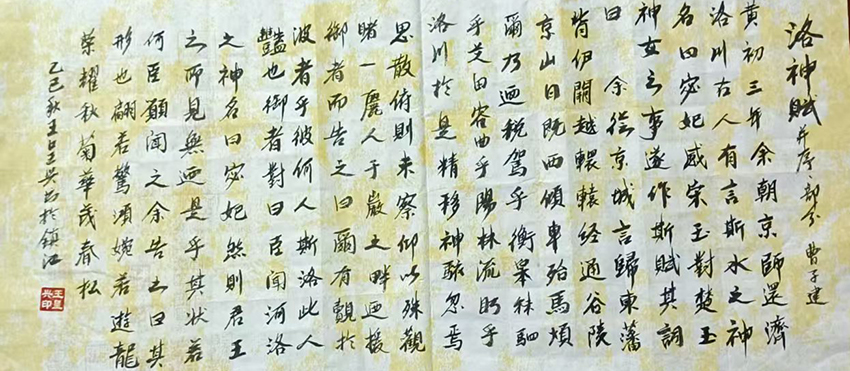 洛神賦并序部分 曹子建
黄初三年余朝京師還濟
洛川古人有言斯水之神
名曰宓妃感宋玉對楚王
神女之事遂作斯賦其詞
曰 余從京城言歸東藩
背伊闕越轘轅经通谷陵
京山日既西傾車殆馬煩
爾乃迴税駕乎蘅皋秣駟
乎芝田容與乎陽林流眄乎
洛川於是精移神駭忽焉
思散俯則未察仰以殊觀
睹一麗人于巖之畔迴援
御者而告之曰爾有覿於
彼者乎彼何人斯洛此人
豔也御者對曰臣聞河洛
之神名曰宓妃然則君王
之所見無迺是乎其状若
何臣願聞之余告之曰其
形也翩若驚鴻婉若遊龍
榮耀秋菊華茂春松
乙巳秋王皇兵書於鎮江